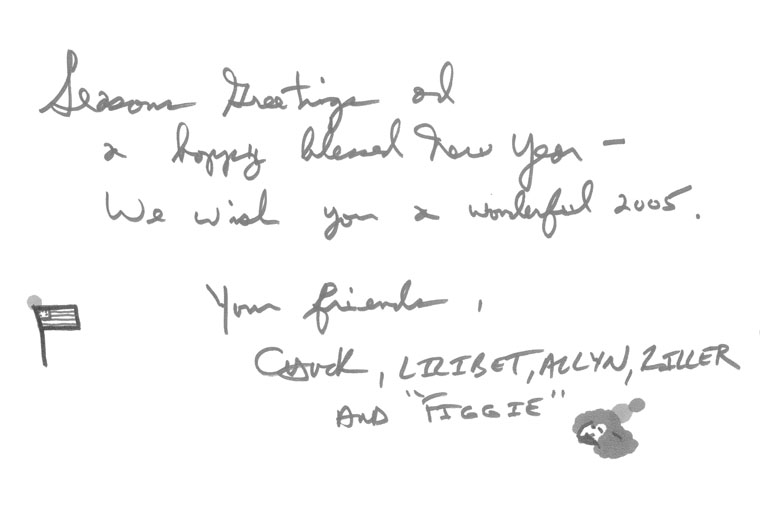 Seasons Greetings ad
a happy blessed New Year –
We wish you a wonderful 2005.
Your friends,
Chuck, LILIBET, ALLYN, ZILLER
AND "FIGGIE"